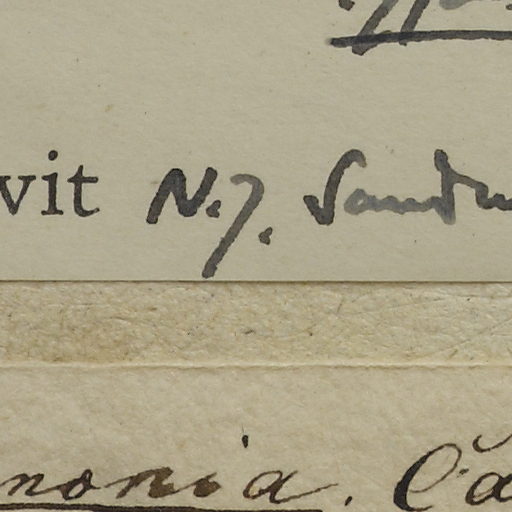 vit N.J. Sandw
nonia. Ca